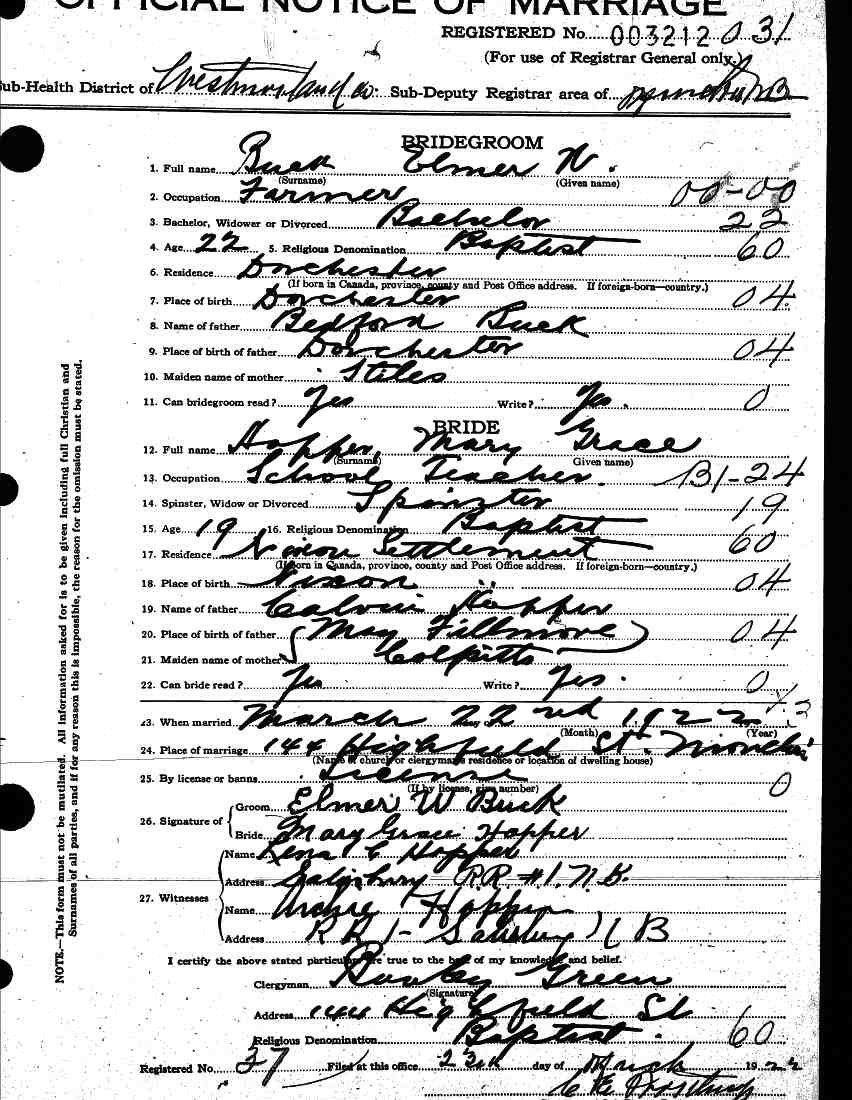 OFFICIAL NOTICE OF MARRIAGE
REGISTERED No. 003212 031
(For use of Registrar General only.)
Sub-Health District of Westmorland Co. Sub-Deputy Registrar area of
BRIDEGROOM
1. Full name Buck Elmer W.
(Surname) (Given name)
2. Occupation Farmer 00-00
3. Bachelor, Widower or Divorced Bachelor 22
4. Age 22 5. Religious Denomination Baptist 60
6. Residence Dorchester
(If born in Canada, province, county and Post Office address. If foreign-born—country.)
7. Place of birth Dorchester 04
8. Name of father Bedford Buck
9. Place of birth of father Dorchester 04
10. Maiden name of mother Stiles
11. Can bridegroom read? Yes Write? Yes. 0
BRIDE
12. Full name Hopper, Mary Grace
(Surname) Given name)
13. Occupation School Teacher. 131-24
14. Spinster, Widow or Divorced Spinster 19
15. Age 19 16. Religious Denomination Baptist 60
17. Residence Nixon Settlement
(If born in Canada, province, county and Post Office address. If foreign-born—country.)
18. Place of birth Nixon " 04
19. Name of father Calvin Hopper
20. Place of birth of father May Fillmore 04
21. Maiden name of mother Colpitts
22. Can bride read? Yes Write? Yes. 0
23. When married March 22nd 1922
(Month) (Year)
24. Place of marriage 144 Highfield St. Moncton
(Name of church or clergyman's residence or location of dwelling house)
25. By license or banns License 0
(If by license, give number)
26. Signature of Groom Elmer W Buck
Bride Mary Grace Hopper
27. Witnesses Name Lena C Hopper
Address Salisbury RR #1. N.B.
Name Hopper
Address R R 1 - Salisbury N B
I certify the above stated particulars are true to the best of my knowledge and belief.
Clergyman Green
(Signature)
Address 144 Highfield St
Religious Denomination Baptist. 60
Registered No. 37 Filed at this office 23rd day of March 1922
NOTE.—This form must not be mutilated. All information asked for is to be given including full Christian and
Surnames of all parties, and if for any reason this is impossible, the reason for the omission must be stated.